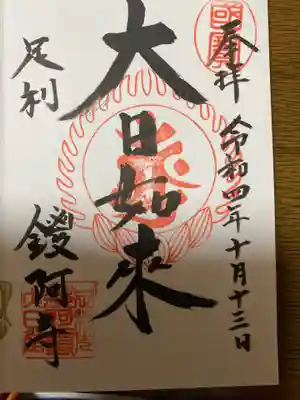 奉拝 令和四年十月十三日
大日如来
足利 鑁阿寺
國寶